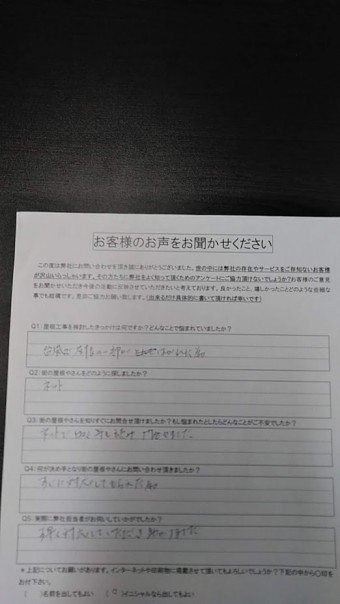 お客様のお声をお聞かせください
この度は弊社にお問い合わせを頂き誠にありがとうございました。世の中には弊社の存在やサービスをご存知ないお客様
が沢山いらっしゃいます。その方たちに弊社をよく知って頂くためのアンケートにご協力頂けないでしょうか？お客様のご意見
をお聞かせいただき今後の活動に反映させていただきたいと考えております。良かったこと、嬉しかったことどのような些細な
事でも結構です。是非ご協力お願い致します。(出来るだけ具体的に書いて頂ければ幸いです)
Q1：屋根工事を検討したきっかけは何ですか？どんなことで悩まれていましたか？
台風で屋根の一部が
Q2：街の屋根やさんをどのように探しましたか？
ネット
Q3：街の屋根やさんを知りすぐにお問合せ頂けましたか？もし悩まれたとしたらどんなことがご不安でしたか？
ネットで
Q4：何が決め手となり街の屋根やさんにお問い合わせ頂きましたか？
すぐに対応して
Q5：実際に弊社担当者がお伺いしていかがでしたか？
対応していただき助かりました
＊上記についてお願いがあります。インターネットや印刷物に掲載させて頂いてもよろしいでしょうか？下記の中から〇印を
お付下さい。
( )名前を出してもよい (〇)イニシャルなら出してもよい